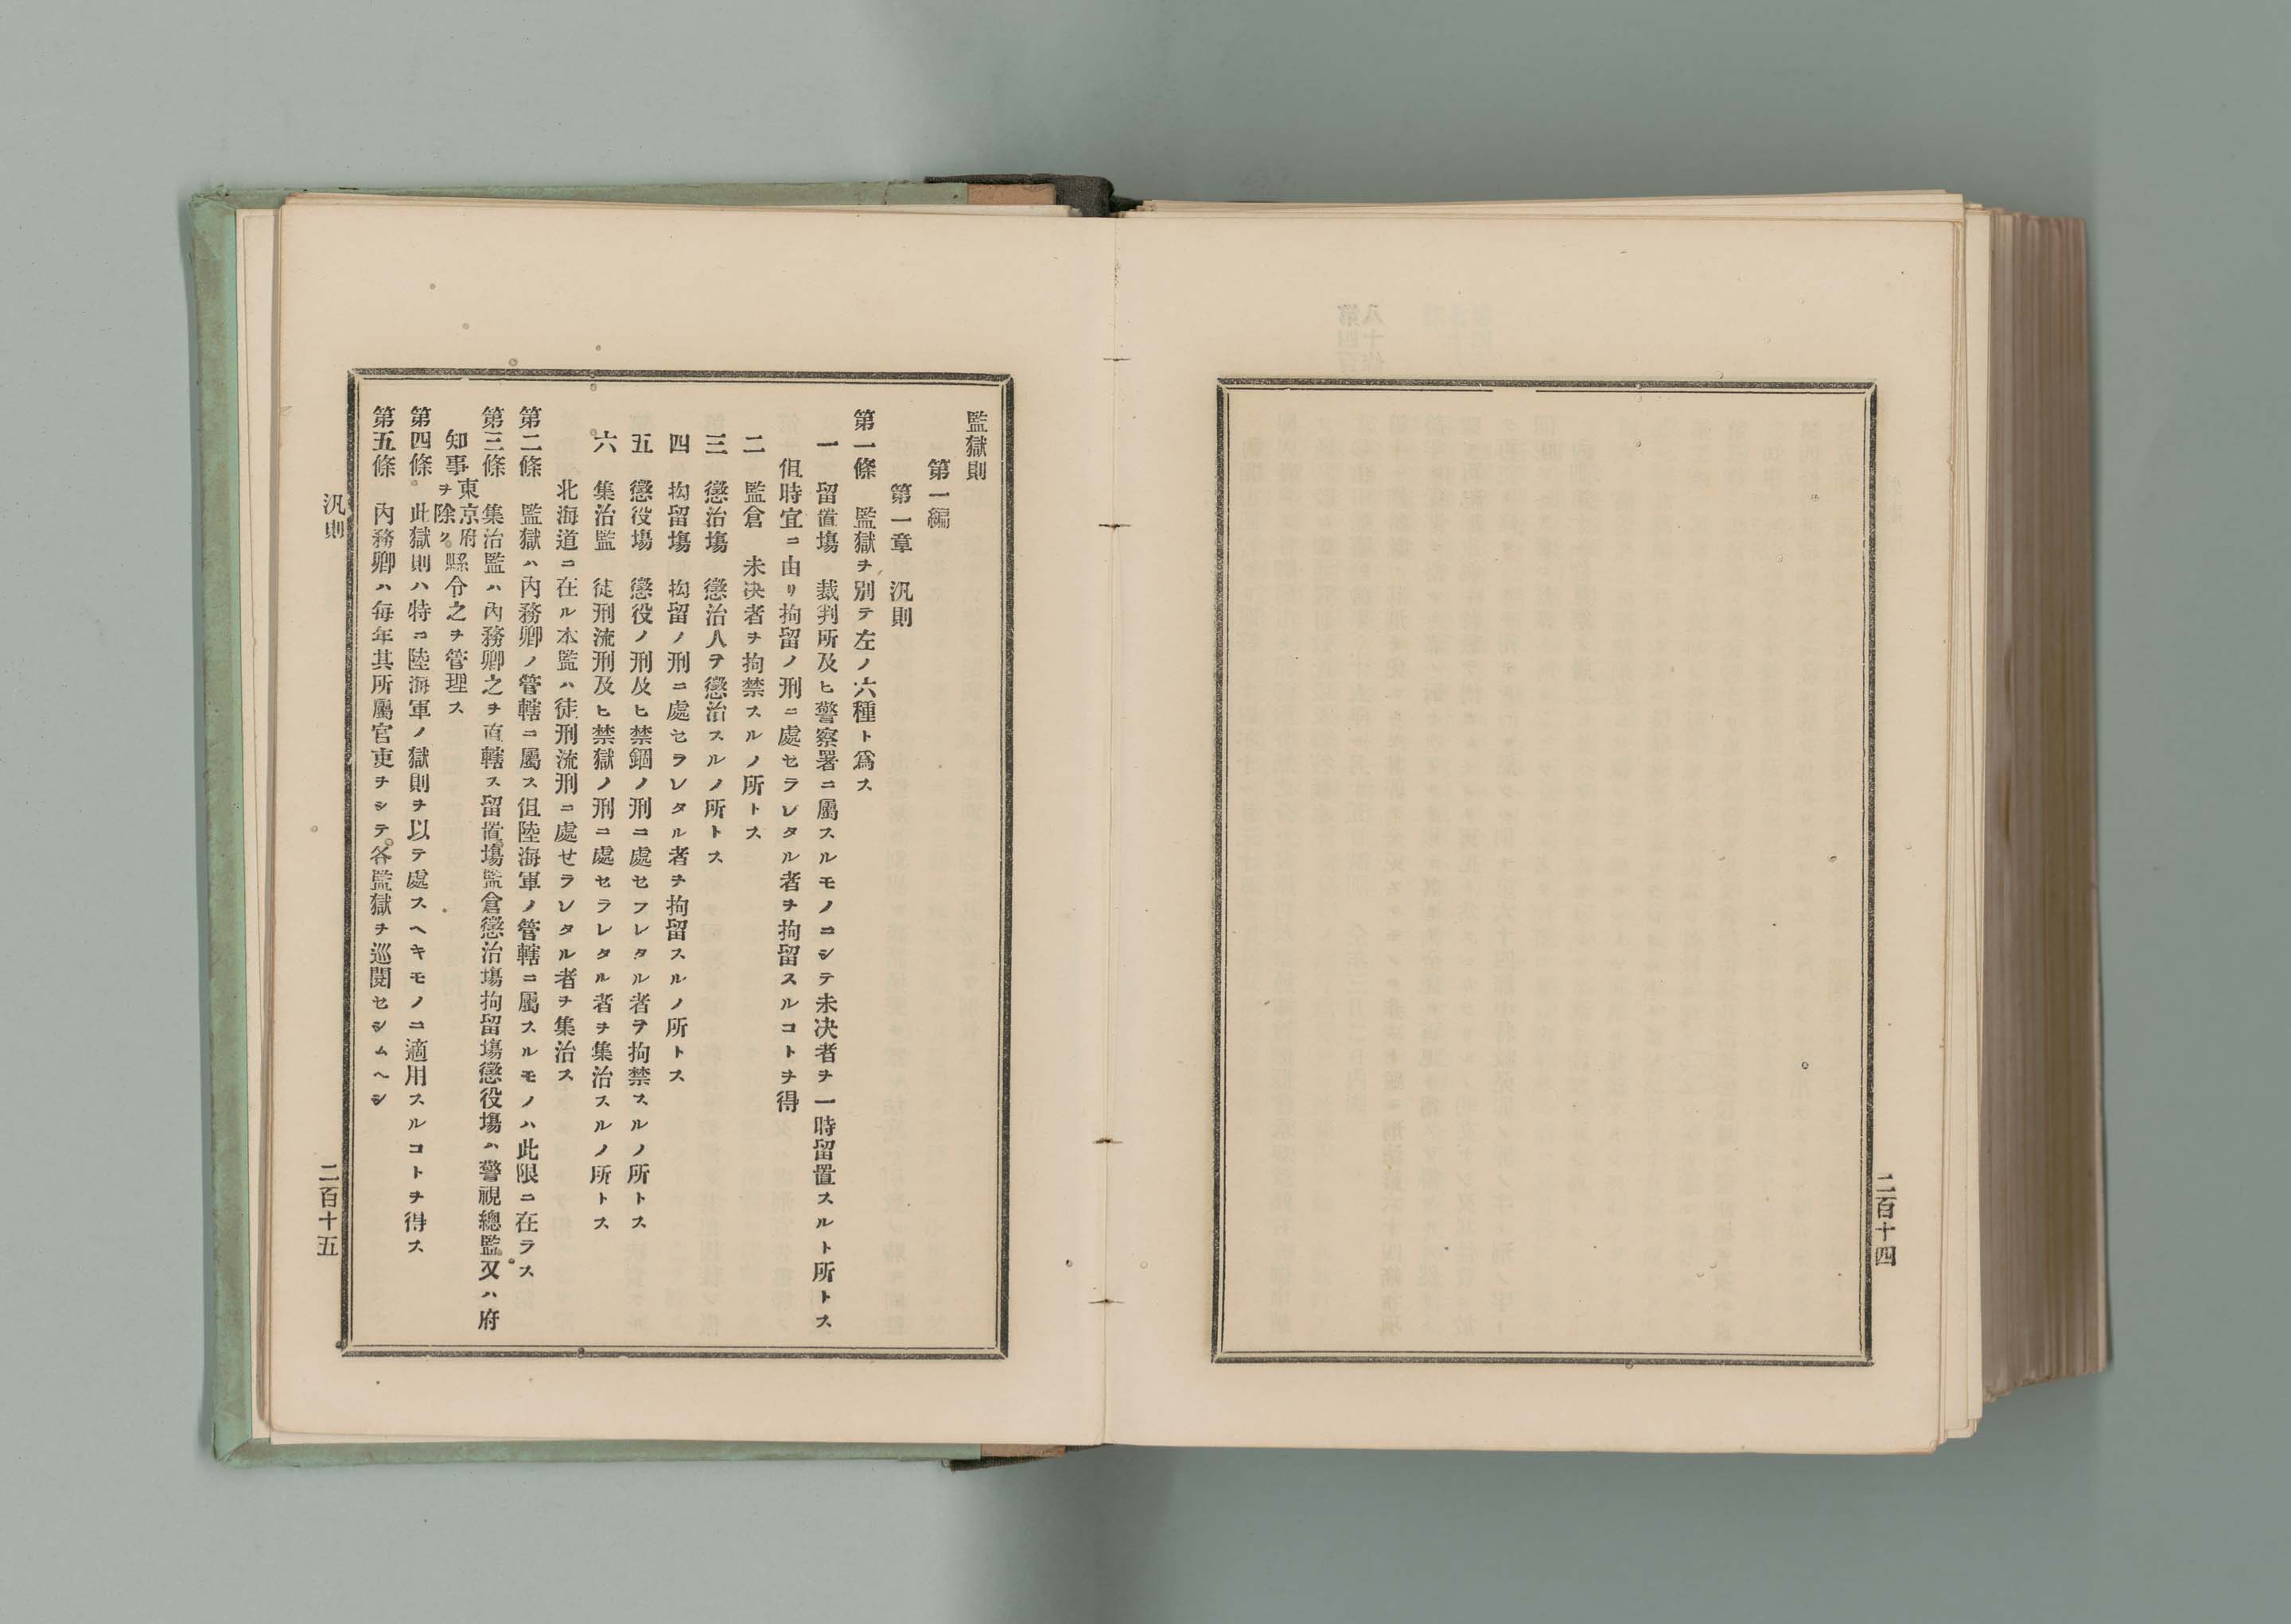 二百十四
監獄則
第一編
第一章　汎則
第一條　監獄ヲ別テ左ノ六種ト爲ス
一　留置塲　裁判所及ヒ警察署ニ屬スルモノニシテ未决者ヲ一時留置スルト所トス
但時宜ニ由リ拘留ノ刑ニ處セラレタル者ヲ拘留スルコトヲ得
二　監倉　未决者ヲ拘禁スルノ所トス
三　懲治塲　懲治人ヲ懲治スルノ所トス
四　拘留塲　拘留ノ刑ニ處セラレタル者ヲ拘留スルノ所トス
五　懲役塲　懲役ノ刑及ヒ禁錮ノ刑ニ處セフレタル者ヲ拘禁スルノ所トス
六　集治監　徒刑流刑及ヒ禁獄ノ刑ニ處セラレタル者ヲ集治スルノ所トス
北海道ニ在ル本監ハ徒刑流刑ニ處せラレタル者ヲ集治ス
第二條　監獄ハ內務卿ノ管轄ニ屬ス但陸海軍ノ管轄ニ屬スルモノハ此限ニ在ラス
第三條　集治監ハ內務卿之ヲ直轄ス留置塲監倉懲治塲拘留塲懲役塲ハ警視總監又ハ府
知事東京府ヲ除ク縣令之ヲ管理ス
第四條　此獄則ハ特ニ陸海軍ノ獄則ヲ以テ處スヘキモノニ適用スルコトヲ得ス
第五條　內務卿ハ每年其所屬官吏ヲシテ各監獄ヲ巡閱セシムヘシ
汎則
二百十五